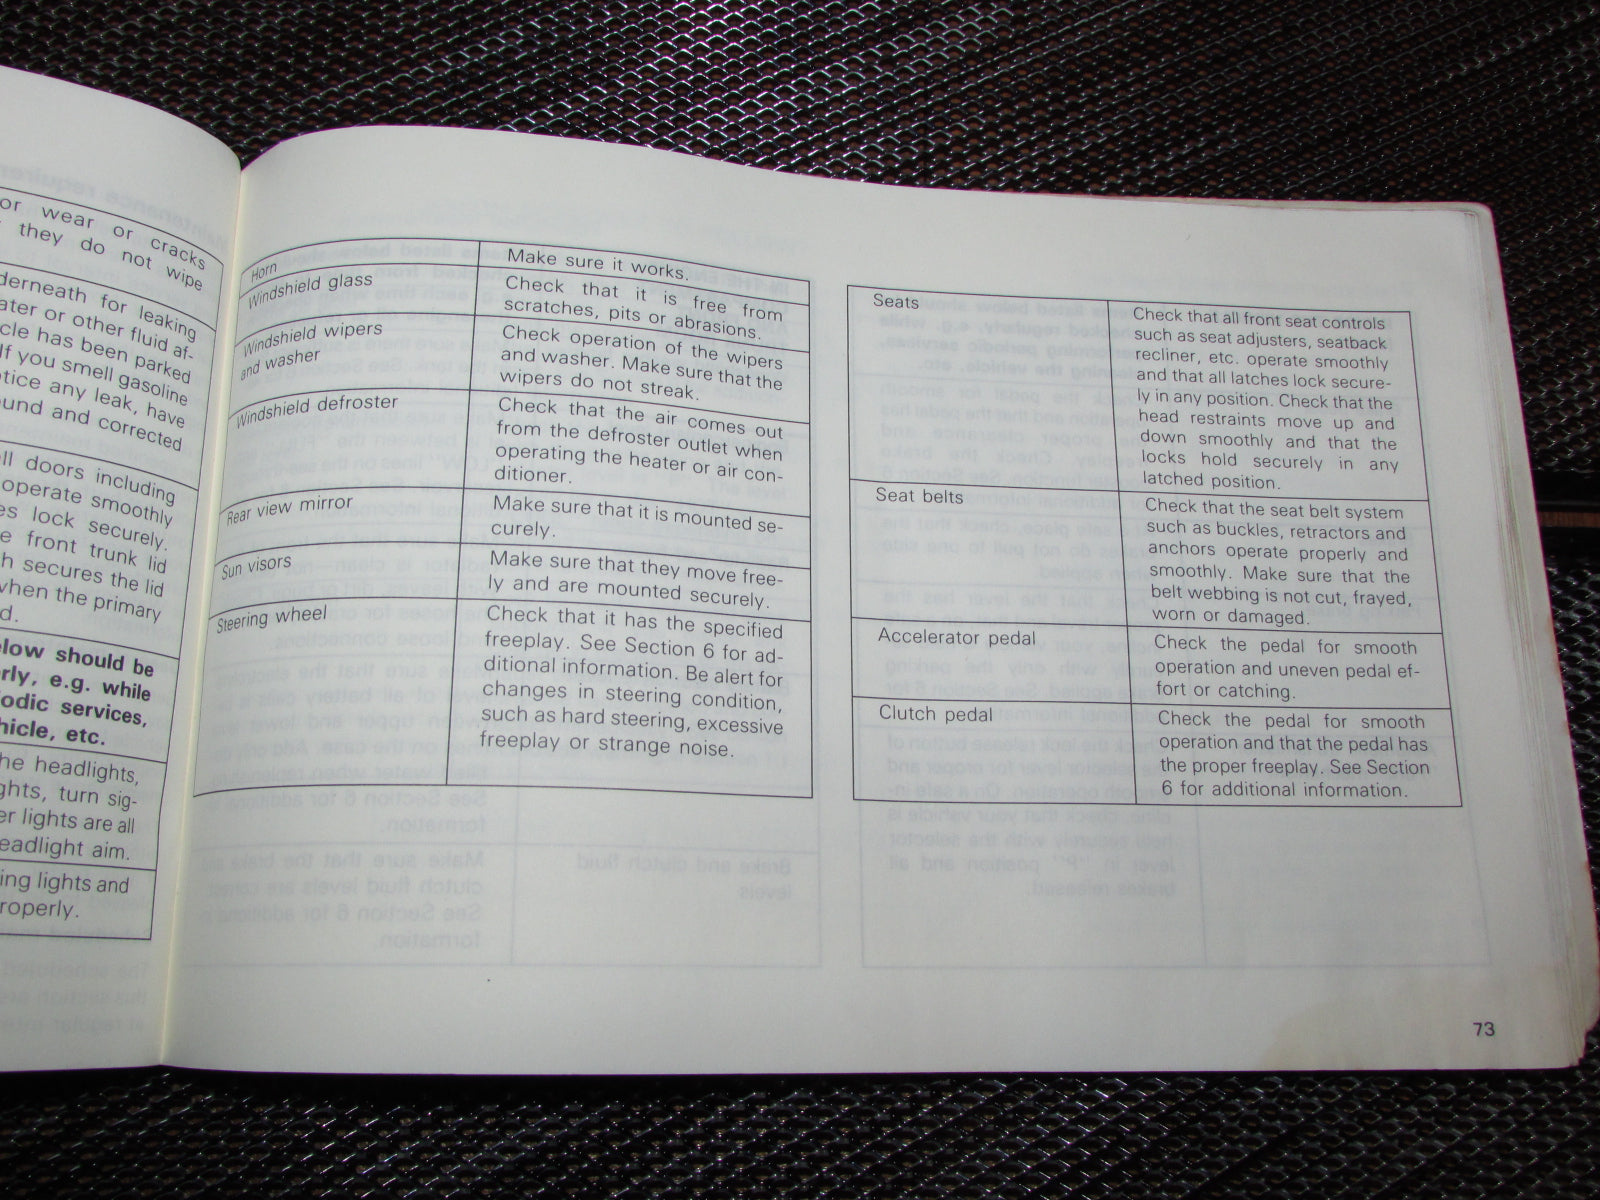 or wear or cracks
they do not wipe
derneath for leaking
ater or other fluid af-
cle has been parked
If you smell gasoline
tice any leak, have
und and corrected
ll doors including
operate smoothly
es lock securely.
e front trunk lid
h secures the lid
when the primary
d.
elow should be
rly, e.g. while
odic services,
hicle, etc.
he headlights,
ghts, turn sig-
er lights are all
eadlight aim.
ing lights and
roperly.
Horn
Make sure it works.
Windshield glass
Check that it is free from
scratches, pits or abrasions.
Windshield wipers
and washer
Check operation of the wipers
and washer. Make sure that the
wipers do not streak.
Windshield defroster
Check that the air comes out
from the defroster outlet when
operating the heater or air con-
ditioner.
Rear view mirror
Make sure that it is mounted se-
curely.
Sun visors
Make sure that they move free-
ly and are mounted securely.
Steering wheel
Check that it has the specified
freeplay. See Section 6 for ad-
ditional information. Be alert for
changes in steering condition,
such as hard steering, excessive
freeplay or strange noise.
Seats
Check that all front seat controls
such as seat adjusters, seatback
recliner, etc. operate smoothly
and that all latches lock secure-
ly in any position. Check that the
head restraints move up and
down smoothly and that the
locks hold securely in any
latched position.
Seat belts
Check that the seat belt system
such as buckles, retractors and
anchors operate properly and
smoothly. Make sure that the
belt webbing is not cut, frayed,
worn or damaged.
Accelerator pedal
Check the pedal for smooth
operation and uneven pedal ef-
fort or catching.
Clutch pedal
Check the pedal for smooth
operation and that the pedal has
the proper freeplay. See Section
6 for additional information.
73